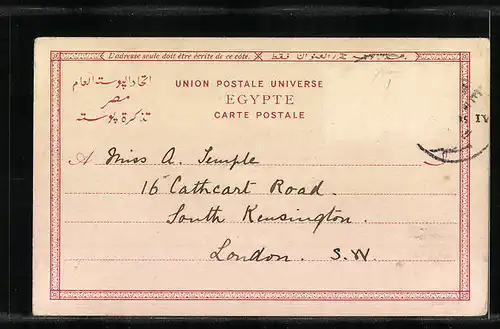 L'adresse seule doit être écrite de ce côté.
UNION POSTALE UNIVERSE
EGYPTE
CARTE POSTALE
اتحاد البوسته العام
مصر
تذكرة بوسته
A Miss A. Temple
16 Cathcart Road.
South Kensington.
London. S.W